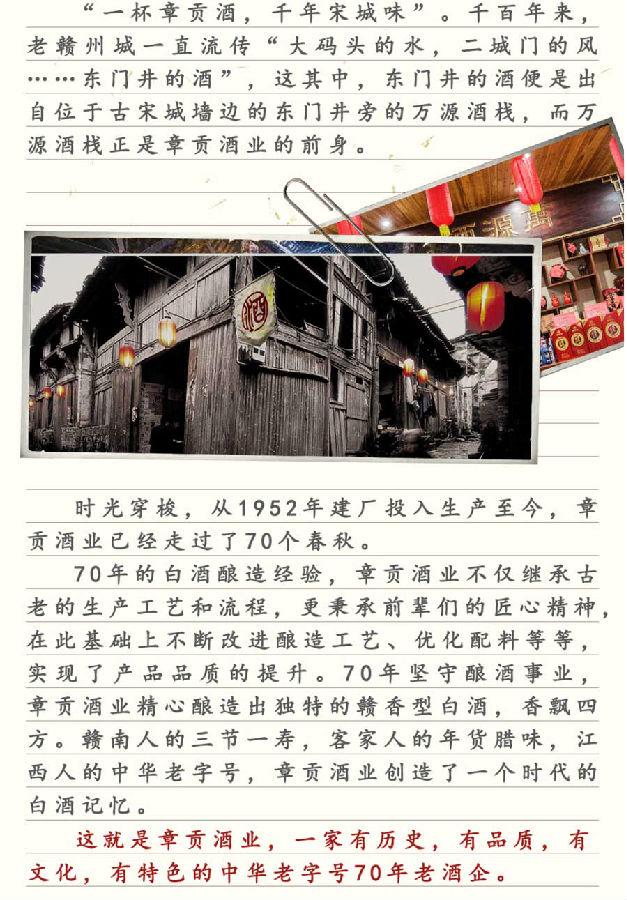 “一杯章贡酒，千年宋城味”。千百年来，
老赣州城一直流传“大码头的水，二城门的风
……东门井的酒”，这其中，东门井的酒便是出
自位于古宋城墙边的东门井旁的万源酒栈，而万
源酒栈正是章贡酒业的前身。
酒源萬
酒
时光穿梭，从1952年建厂投入生产至今，章
贡酒业已经走过了70个春秋。
70年的白酒酿造经验，章贡酒业不仅继承古
老的生产工艺和流程，更秉承前辈们的匠心精神，
在此基础上不断改进酿造工艺、优化配料等等，
实现了产品品质的提升。70年坚守酿酒事业，
章贡酒业精心酿造出独特的赣香型白酒，香飘四
方。赣南人的三节一寿，客家人的年货腊味，江
西人的中华老字号，章贡酒业创造了一个时代的
白酒记忆。
这就是章贡酒业，一家有历史，有品质，有
文化，有特色的中华老字号70年老酒企。